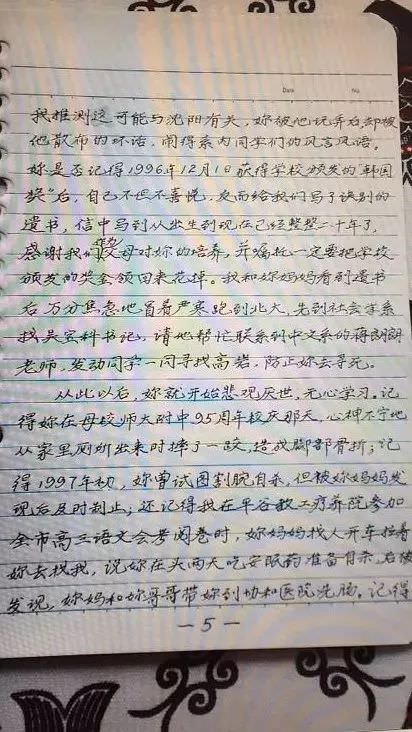 Date No.
我推测这可能与沈阳有关，妳被他玩弄后，却被
他散布的坏话，闹得系内同学们的风言风语。
妳是否记得1996年12月1日获得学校颁发的“韩国
奖”后，自己不但不喜悦，反而给我们写了诀别的
遗书，信中写到从出生到现在已经整整二十年了，
感谢我们父母对妳的培养，并嘱托一定要把学校
颁发的奖金领回来花掉。我和妳妈妈看到遗书
后万分焦急地冒着严寒跑到北大，先到社会学系
找吴宝科书记，请他帮忙联系到中文系的蒋朗朗
老师，发动同学一同寻找高岩，防止妳去寻死。
从此以后，妳就开始悲观厌世，无心学习。记
得妳在母校师大附中95周年校庆那天，心神不宁地
从家里厕所出来时摔了一跤，造成脚部骨折；记
得1997年初，妳曾试图割腕自杀，但被妳妈妈发
现后及时制止；还记得我在平谷教工疗养院参加
全市高三语文会考阅卷时，妳妈妈找人开车拉着
妳去找我，说妳在头两天吃安眠药准备自杀，后被
发现，妳妈和妳哥哥带妳到协和医院洗肠。记得
— 5 —